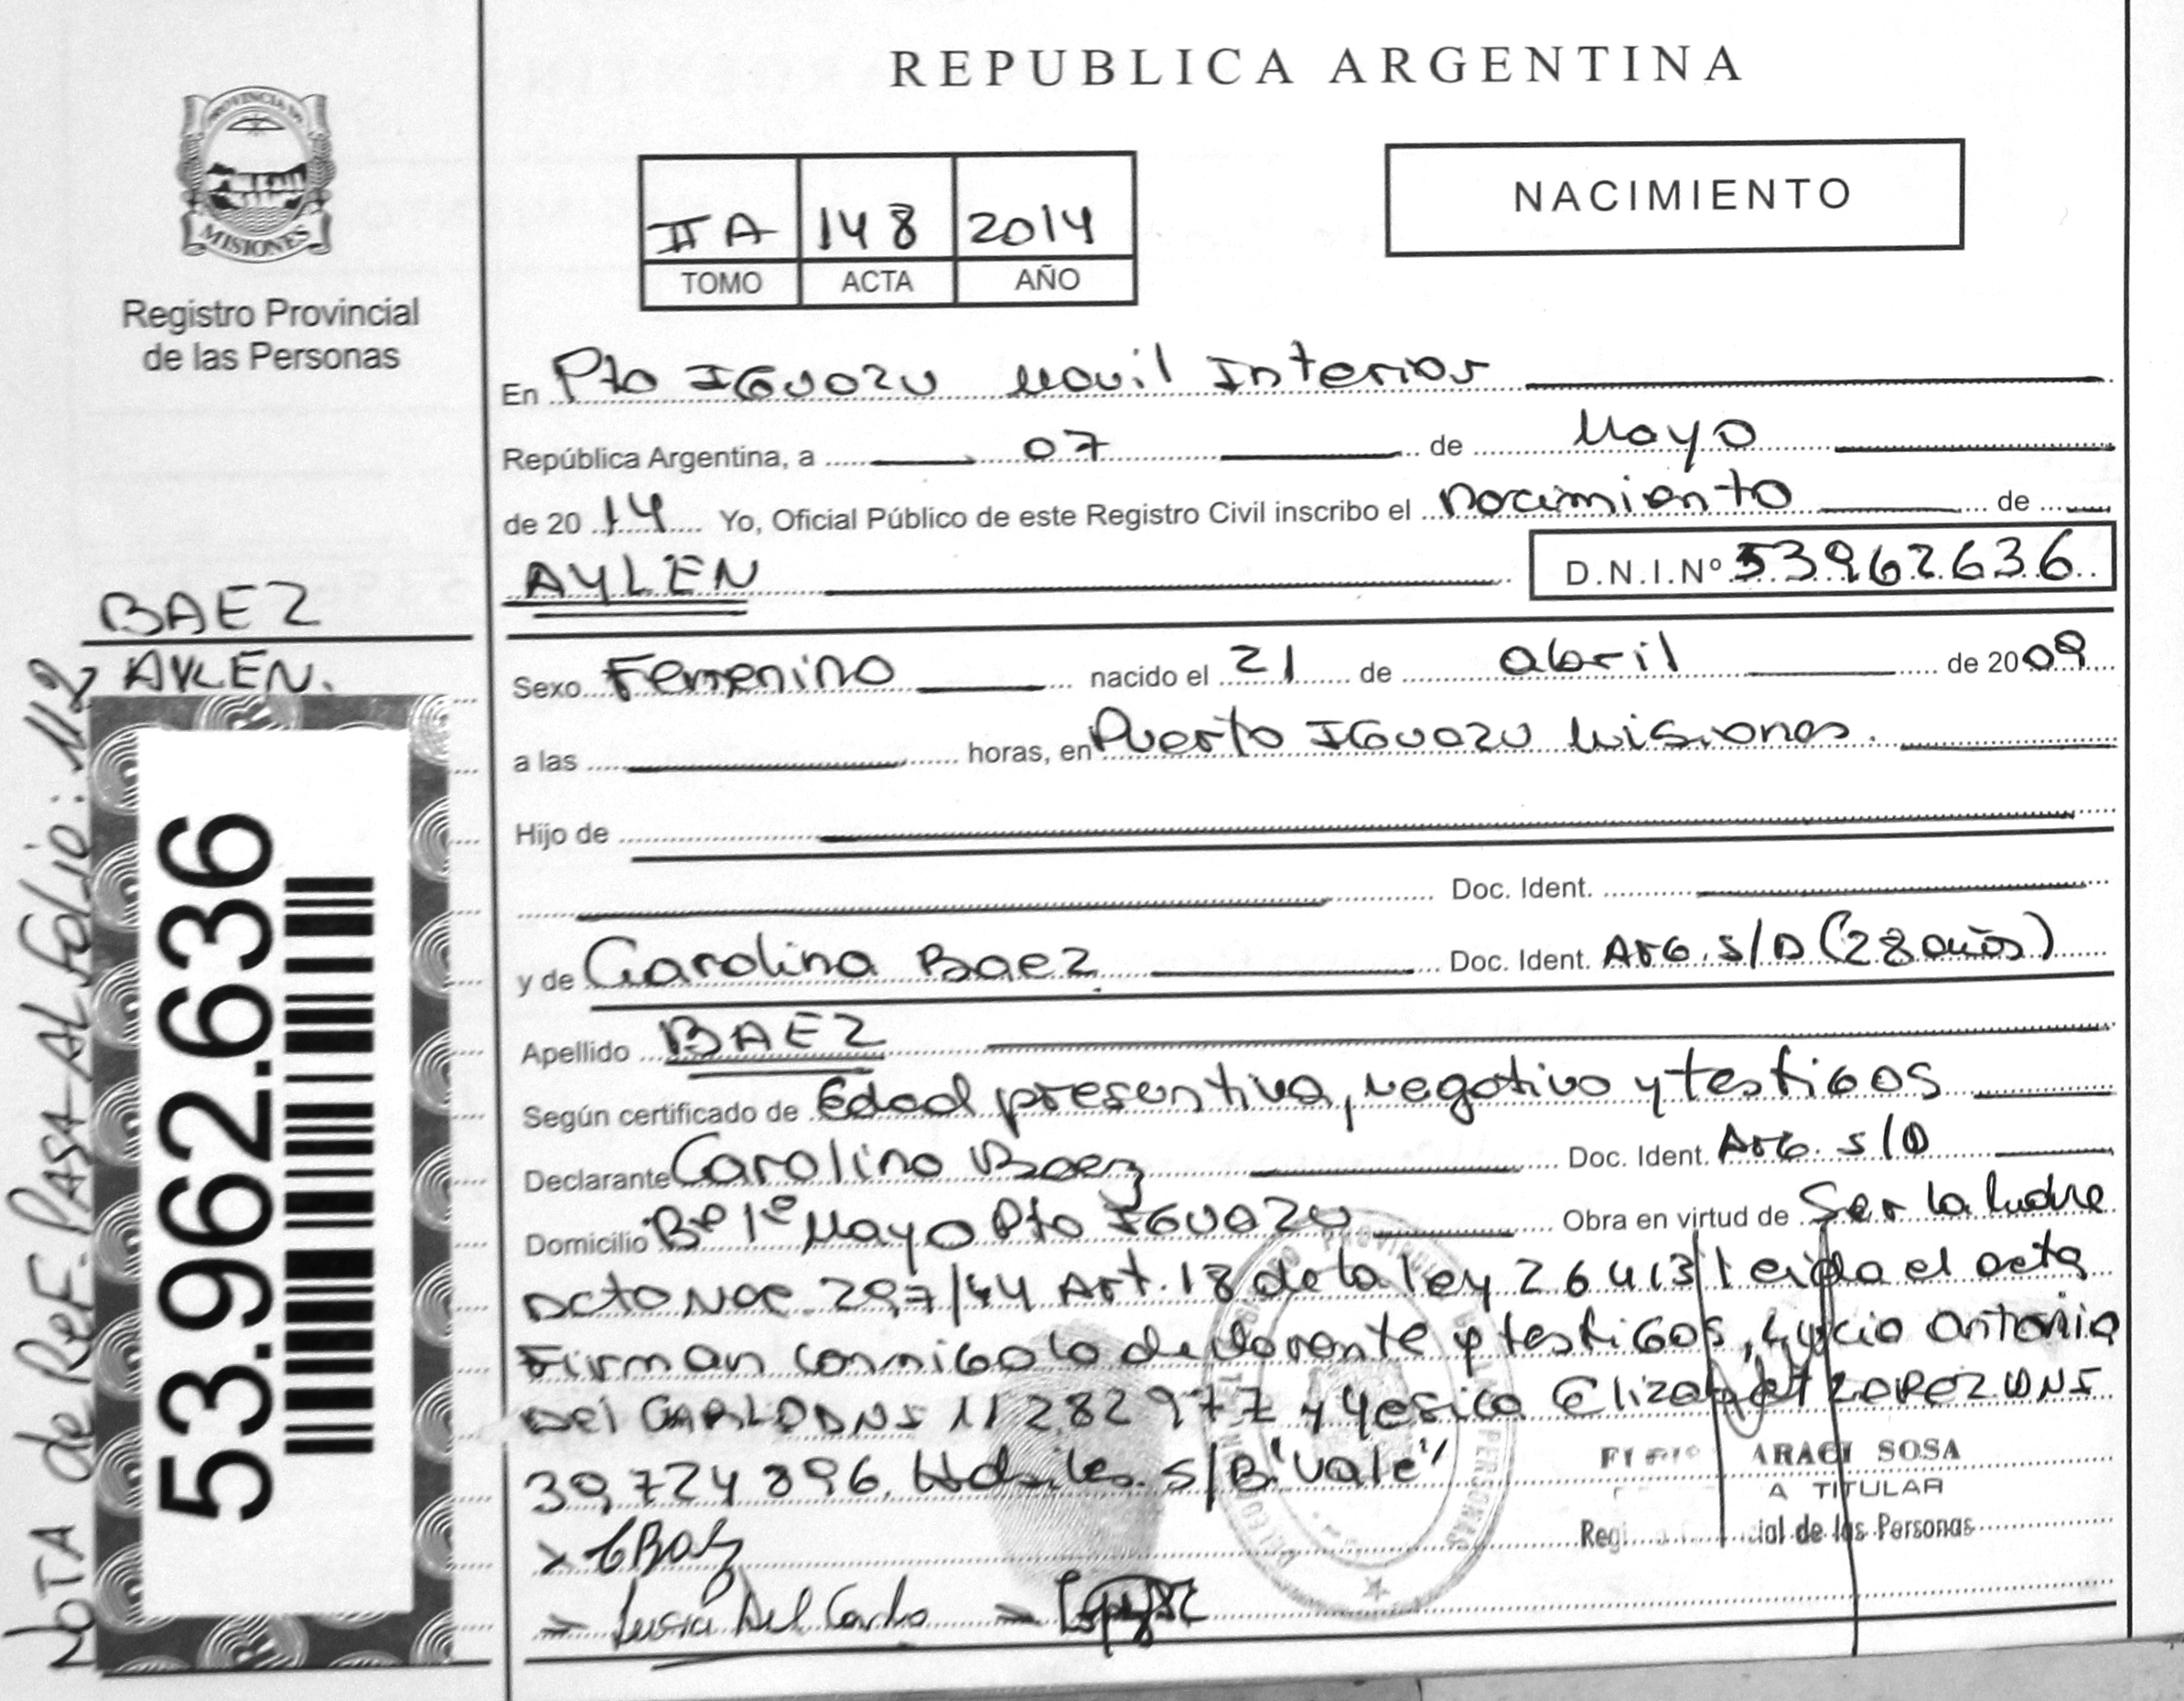 REPUBLICA ARGENTINA
PROVINCIA DE
MISIONES
Registro Provincial
de las Personas
NACIMIENTO
II A 148 2014
TOMO ACTA AÑO
En Pto IGUAZU Movil Interior
República Argentina, a 07 de Mayo
de 2014 Yo, Oficial Público de este Registro Civil inscribo el nacimiento de
AYLEN D.N.I.Nº 53962636
BAEZ
AYLEN.
Sexo Femenino nacido el 21 de abril de 2009
a las horas, en Puerto IGUAZU Misiones.
Hijo de
Doc. Ident.
y de Carolina Baez Doc. Ident. ArG. S/D (28 años)
Apellido BAEZ
Según certificado de Edad presentiva, negativo y testiGos
Declarante Carolina Baez Doc. Ident. ArG. S/D
Domicilio Bº 1º Mayo Pto IGUAZU Obra en virtud de Ser la Madre
Dcto Nac. 297/14 Art. 18 de la ley 26413 leida el acta
Firman conmiGo la declarante y testiGos, Antonio
Del CARLO DNI 11282977 y Yesica Elizabet LOPEZ DNI
39,724896. Habiles. S/B "Vale"
ARACI SOSA
A TITULAR
de las Personas
CBaez
Del Carlo
53.962.636
NOTA de ReF. PASA AL Folio: 112